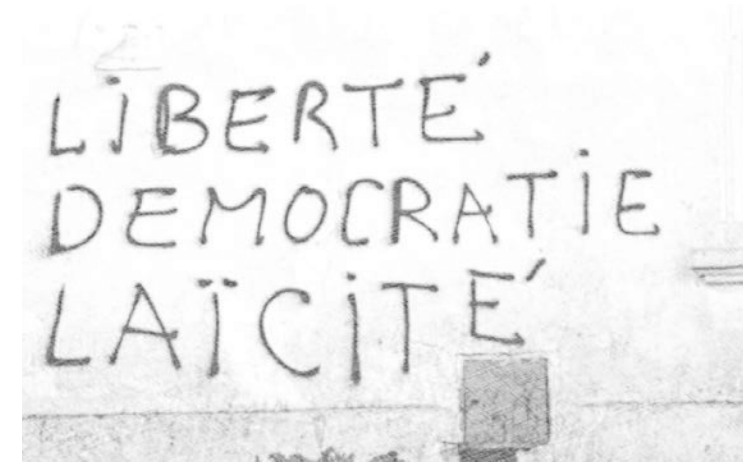 LiBERTÉ
DEMOCRATiE
LAÏCiTÉ